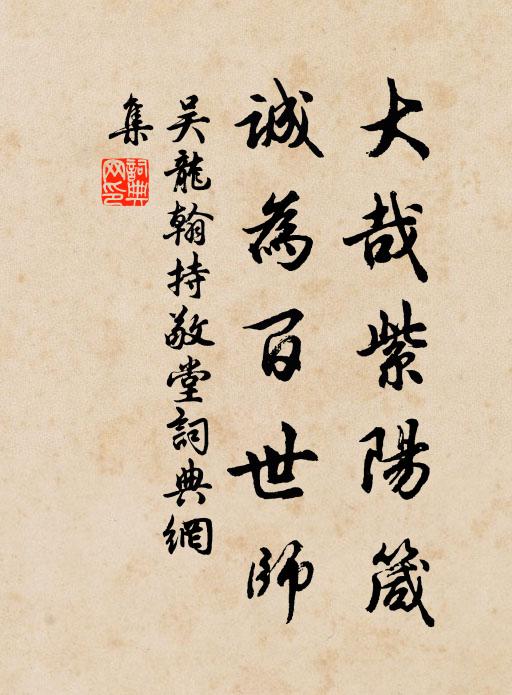 大哉紫陽箴
誠為百世師
吴龍翰持敬堂詞典網
集
詞典网印